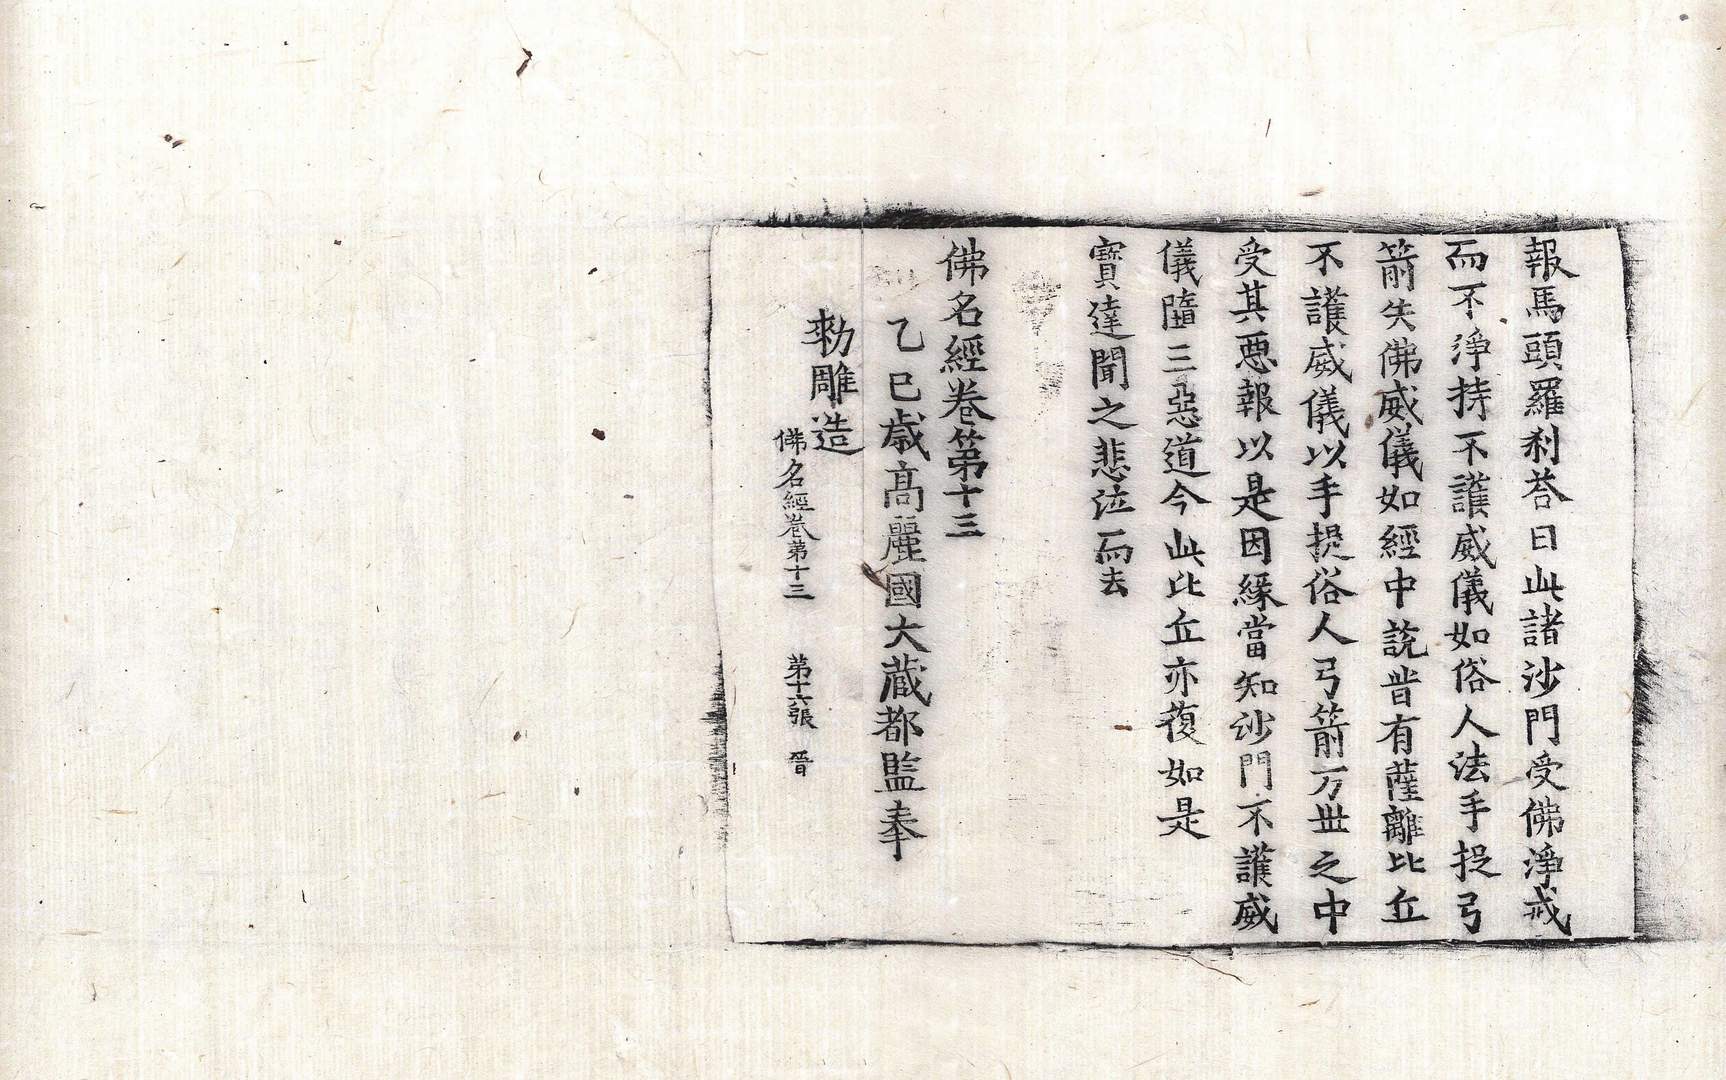 報馬頭羅剎荅曰此諸沙門受佛淨戒
而不淨持不護威儀如俗人法手捉弓
箭失佛威儀如經中說昔有薩離比丘
不護威儀以手捉俗人弓箭万世之中
受其惡報以是因緣當知沙門不護威
儀墮三惡道今此比丘亦復如是
寶達聞之悲泣而去
佛名經卷第十三
乙巳歲高麗國大藏都監奉
勑雕造
佛名經卷第十三　第十六張　晉